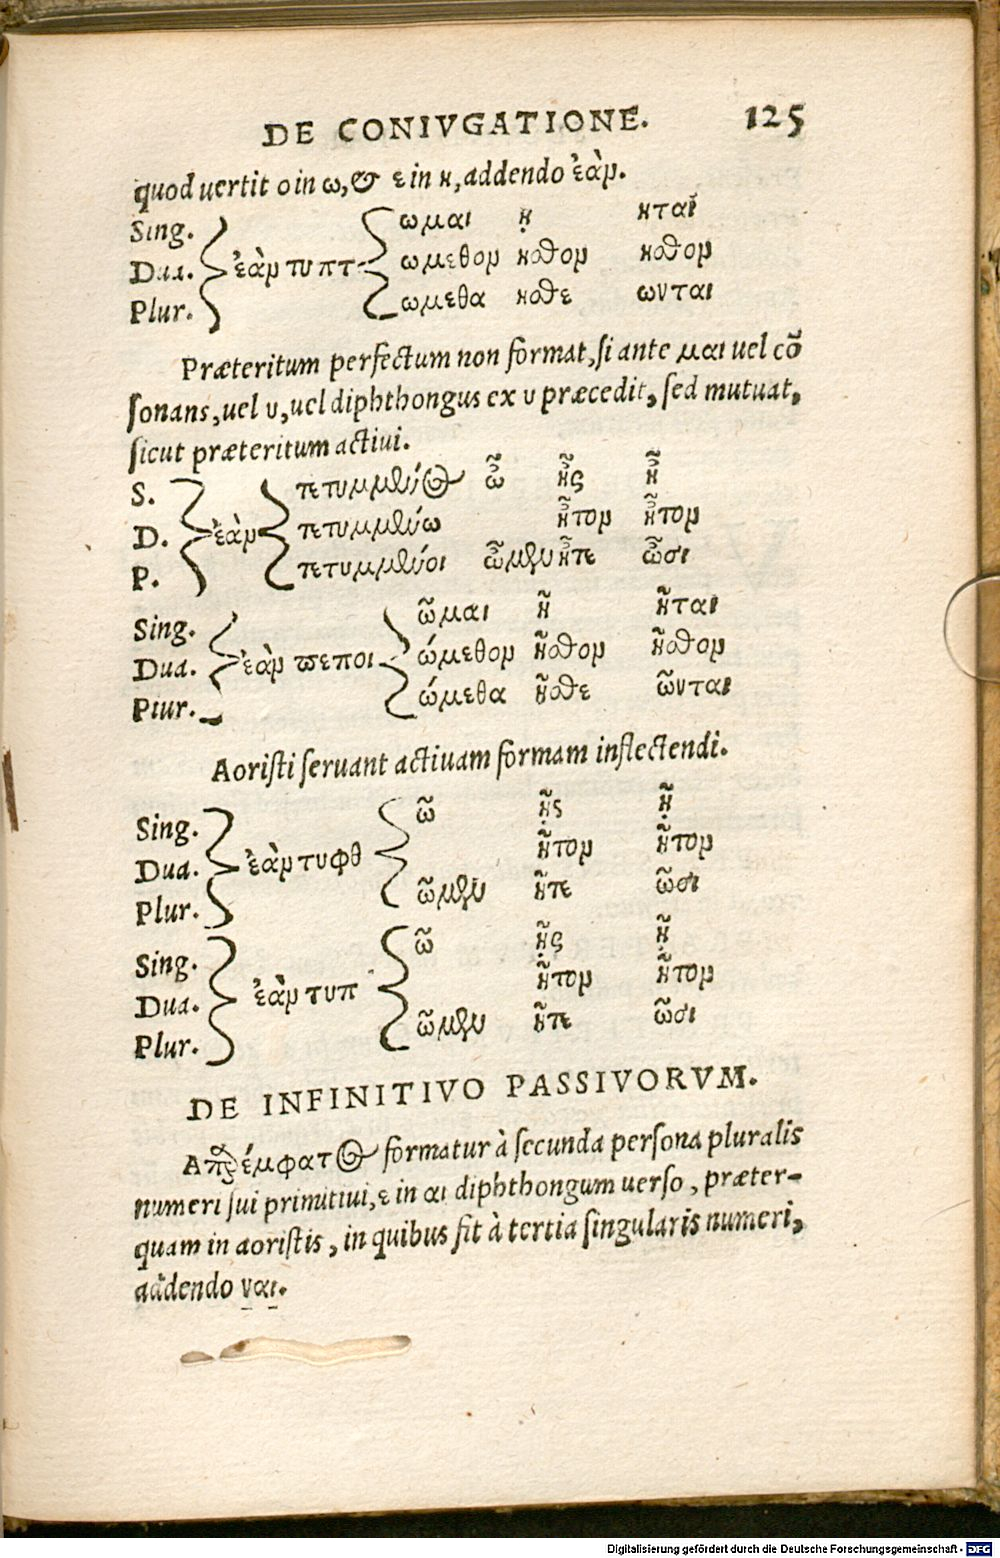 DE CONIVGATIONE. 125
quod uertit o in ω, & ε in η, addendo ἐὰν.
Sing. ωμαι ῃ ηται
Dua. ἐὰν τυπτ ωμεθον ησθον ησθον
Plur. ωμεθα ησθε ωνται
Præteritum perfectum non format, si ante μαι uel cō
sonans, uel υ, uel diphthongus ex υ præcedit, sed mutuat,
sicut præteritum actiui.
S. τετυμμένος ὦ ᾖς ᾖ
D. ἐὰν τετυμμένω ἦτον ἦτον
P. τετυμμένοι ὦμεν ἦτε ὦσι
Sing. ῶμαι ῆ ῆται
Dua. ἐὰν πεποι ώμεθον ῆσθον ῆσθον
Plur. ώμεθα ῆσθε ῶνται
Aoristi seruant actiuam formam inflectendi.
Sing. ῶ ῇς ῇ
Dua. ἐὰν τυφθ ῆτον ῆτον
Plur. ῶμεν ῆτε ῶσι
Sing. ῶ ῇς ῇ
Dua. ἐὰν τυπ ῆτον ῆτον
Plur. ῶμεν ῆτε ῶσι
DE INFINITIVO PASSIVORVM.
Απαρέμφατος formatur à secunda persona pluralis
numeri sui primitiui, ε in αι diphthongum uerso, præter-
quam in aoristis, in quibus fit à tertia singularis numeri,
addendo ναι.
Digitalisierung gefördert durch die Deutsche Forschungsgemeinschaft - DFG